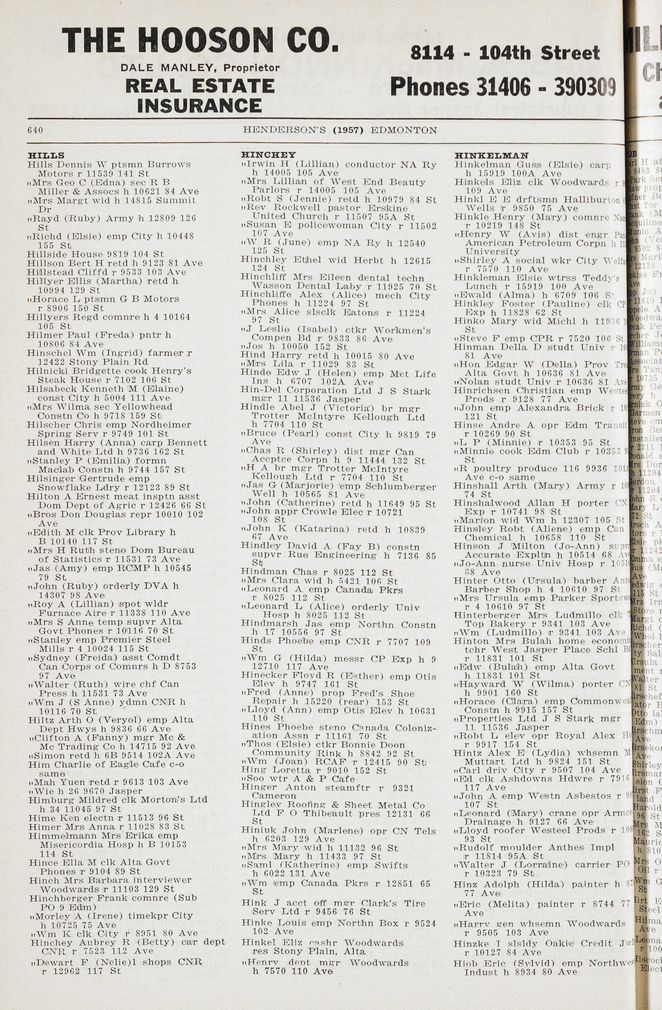 THE HOOSON CO.
DALE MANLEY, Proprietor
REAL ESTATE
INSURANCE
8114 - 104th Street
Phones 31406 - 390309
640
HENDERSON'S (1957) EDMONTON
HILLS
Hills Dennis W ptsmn Burrows
Motors r 11539 141 St
„Mrs Geo C (Edna) sec R B
Miller & Assocs h 10621 84 Ave
„Mrs Margt wid h 14815 Summit
Dr
„Rayd (Ruby) Army h 12809 126
St
„Richd (Elsie) emp City h 10448
155 St
Hillside House 9819 104 St
Hillson Bert H retd h 9123 81 Ave
Hillstead Cliffd r 9533 103 Ave
Hillyer Ellis (Martha) retd h
10994 129 St
„Horace L ptsmn G B Motors
r 8906 150 St
Hillyers Regd comnre h 4 10164
105 St
Hilmer Paul (Freda) pntr h
10806 84 Ave
Hinschel Wm (Ingrid) farmer r
12422 Stony Plain Rd
Hilnicki Bridgette cook Henry's
Steak House r 7102 106 St
Hilsabeck Kenneth M (Elaine)
const City h 5004 111 Ave
„Mrs Wilma sec Yellowhead
Constn Co h 9718 159 St
Hilscher Chris emp Nordheimer
Spring Serv r 9749 101 St
Hilsen Harry (Anna) carp Bennett
and White Ltd h 9736 162 St
„Stanley P (Emilia) formn
Madab Constn h 9744 157 St
Hilsinger Gertrude emp
Snowflake Ldry r 12123 89 St
Hilton A Ernest meat insptn asst
Dom Dept of Agric r 12426 66 St
„Bros Don Douglas repr 10010 102
Ave
„Edith M clk Prov Library h
B 10140 117 St
„Mrs H Ruth steno Dom Bureau
of Statistics r 11531 73 Ave
„Jas (Amy) emp RCMP h 10545
79 St
„John (Ruby) orderly DVA h
14307 98 Ave
„Roy A (Lillian) spot wldr
Furnace Aire r 11338 110 Ave
„Mrs S Anne temp supvr Alta
Govt Phones r 10116 70 St
„Stanley emp Premier Steel
Mills r 4 10024 115 St
„Sydney (Freida) asst Comdt
Can Corps of Comnrs h D 8753
97 Ave
„Walter (Ruth) wire chf Can
Press h 11531 73 Ave
„Wm J (S Anne) ydmn CNR h
10116 70 St
Hiltz Arth O (Veryol) emp Alta
Dept Hwys h 9836 66 Ave
„Clifton A (Fanny) mgr Mc &
Mc Trading Co h 14715 92 Ave
„Simon retd h 6B 9514 102A Ave
Him Charlie of Eagle Cafe c-o
same
„Mah Yuen retd r 9613 103 Ave
„Wie h 26 9670 Jasper
Himburg Mildred clk Morton's Ltd
h 34 11045 97 St
Hime Ken electn r 11513 96 St
Himer Mrs Anna r 11028 83 St
Himmelmann Mrs Erika emp
Misericordia Hosp h B 10153
114 St
Hince Ella M clk Alta Govt
Phones r 9104 89 St
Hinch Mrs Barbara interviewer
Woodwards r 11103 129 St
Hinchberger Frank comnre (Sub
PO 9 Edm)
„Morley A (Irene) timekpr City
h 10725 75 Ave
„Wm K clk City r 8951 80 Ave
Hinchey Aubrey R (Betty) car dept
CNR r 7523 112 Ave
„Dewart F (Nelie)l shops CNR
r 12962 117 St
HINCHEY
„Irwin H (Lillian) conductor NA Ry
h 14005 105 Ave
„Mrs Lillian of West End Beauty
Parlors r 14005 105 Ave
„Robt S (Jennie) retd h 10979 84 St
„Rev Rockwell pastor Erskine
United Church r 11507 95A St
„Susan E policewoman City r 11502
107 Ave
„W R (June) emp NA Ry h 12540
125 St
Hinchley Ethel wid Herbt h 12615
124 St
Hinchliff Mrs Eileen dental techn
Wasson Dental Laby r 11925 70 St
Hinchliffe Alex (Alice) mech City
Phones h 11224 97 St
„Mrs Alice slsclk Eatons r 11224
97 St
„J Leslie (Isabel) ctkr Workmen's
Compen Bd r 9833 86 Ave
„Jos h 10050 152 St
Hind Harry retd h 10015 80 Ave
„Mrs Lila r 11029 83 St
Hinde Edw J (Helen) emp Met Life
Ins h 6707 102A Ave
Hin-Del Corporation Ltd J S Stark
mgr 11 11536 Jasper
Hindle Abel J (Victoria) br mgr
Trotter McIntyre Kellough Ltd
h 7704 110 St
„Bruce (Pearl) const City h 9819 79
Ave
„Chas R (Shirley) dist mgr Can
Accptce Corpn h 9 11444 132 St
„H A br mgr Trotter McIntyre
Kellough Ltd r 7704 110 St
„Jas G (Marjorie) emp Schlumberger
Well h 10565 81 Ave
„John (Catherine) retd h 11649 95 St
„John appr Crowle Elec r 10721
108 St
„John K (Katarina) retd h 10839
67 Ave
Hindley David A (Fay B) constn
supvr Rue Engineering h 7136 85
St
Hindman Chas r 8025 112 St
„Mrs Clara wid h 5421 106 St
„Leonard A emp Canada Pkrs
r 8025 112 St
„Leonard L (Alice) orderly Univ
Hosp h 8025 112 St
Hindmarsh Jas emp Northn Constn
h 17 10556 97 St
Hinds Phoebe emp CNR r 7707 109
St
„Wm G (Hilda) messr CP Exp h 9
12710 117 Ave
Hinecker Floyd R (Esther) emp Otis
Elev h 9747 161 St
„Fred (Anne) prop Fred's Shoe
Repair h 15220 (rear) 153 St
„Lloyd (Ann) emp Otis Elev h 10631
110 St
Hines Phoebe steno Canada Coloniz-
ation Assn r 11161 70 St
„Thos (Elsie) ctkr Bonnie Doon
Community Rink h 8842 92 St
„Wm (Joan) RCAF r 12415 90 St
Hing Loretta r 9010 152 St
„Soo wtr A & P Cafe
Hinger Anton steamftr r 9321
Cameron
Hingley Roofing & Sheet Metal Co
Ltd F O Thibeault pres 12131 66
St
Hiniuk John (Marlene) opr CN Tels
h 6203 129 Ave
„Mrs Mary wid h 11132 96 St
„Mrs Mary h 11433 97 St
„Saml (Katherine) emp Swifts
h 6022 131 Ave
„Wm emp Canada Pkrs r 12851 65
St
Hink J acct off mgr Clark's Tire
Serv Ltd r 9456 76 St
Hinke Louis emp Northn Box r 9524
102 Ave
Hinkel Eliz cashr Woodwards
res Stony Plain, Alta
„Henry dent mgr Woodwards
h 7570 110 Ave
HINKELMAN
Hinkelman Guss (Elsie) carp
h 15919 100A Ave
Hinkels Eliz clk Woodwards r
109 Ave
Hinkl E E drftsmn Halliburton
Wells r 9850 75 Ave
Hinkle Henry (Mary) comnre
r 10219 148 St
„Henry W (Avis) dist engr
American Petroleum Corpn h
University
„Shirley A social wkr City
r 7570 110 Ave
Hinkleman Elsie wtrss Teddy's
Lunch r 15919 100 Ave
„Ewald (Alma) h 6709 106 St
Hinkley Foster (Pauline) clk
Exp h 11828 62 St
Hinko Mary wid Michl h
St
„Steve F emp CPR r 7520 106 St
Hinman Della D studt Univ r
81 Ave
„Hon Edgar W (Della) Prov
Alta Govt h 10636 81 Ave
„Nolan studt Univ r 10636 81 Ave
Hinrichsen Christian emp
Prods r 9128 77 Ave
„John emp Alexandra Brick r
121 St
Hinse Andre A opr Edm Transit
r 10269 90 St
„L P (Minnie) r 10353 95 St
„Minnie cook Edm Club r 10353
St
„R poultry produce 116 9936
Ave c-o same
Hinshall Arth (Mary) Army r
74 St
Hinshalwood Allan H porter CN
Exp r 10741 98 St
„Marion wid Wm h 12307 105 St
Hinsley Robt (Aliene) emp Can
Chemical h 10658 110 St
Hinson J Milton (Jo-Ann)
Accurate Expltn h 10514 68 Ave
„Jo-Ann nurse Univ Hosp r
68 Ave
Hinter Otto (Ursula) barber
Barber Shop h 4 10610 97 St
„Mrs Ursula emp Parker
r 4 10610 97 St
Hinterberger Mrs Ludmillo clk
Top Bakery r 9341 103 Ave
„Wm (Ludmillo) r 9341 103 Ave
Hinton Mrs Bulah home
tchr West Jasper Place Schl
r 11831 101 St
„Edw (Bulah) emp Alta Govt
h 11831 101 St
„Hayward W (Wilma) porter
h 9901 160 St
„Horace (Clara) emp
Constn h 9915 157 St
„Properties Ltd J S Stark mgr
11 11536 Jasper
„Robt L elev opr Royal Alex
r 9917 154 St
Hintz Alex J (Lydia) whsemn
Muttart Ltd h 9824 151 St
„Carl driv City r 9507 104 Ave
„Ed clk Ashdowns Hdwre r
117 Ave
„John A emp Westn Asbestos r
107 St
„Leonard (Mary) crane opr
Drainage h 9127 66 Ave
„Lloyd roofer Westeel Prods r
93 St
„Rudolf moulder Anthes Impl
r 11814 95A St
„Walter J (Lorraine) carrier PO
r 10323 79 St
Hinz Adolph (Hilda) painter h
77 Ave
„Eric (Melita) painter r 8744
Ave
„Harry gen whsemn Woodwards
r 9505 103 Ave
Hinzke I slsldy Oakie Credit
r 10127 84 Ave
Hiob Eric (Sylvid) emp
Indust h 8934 80 Ave